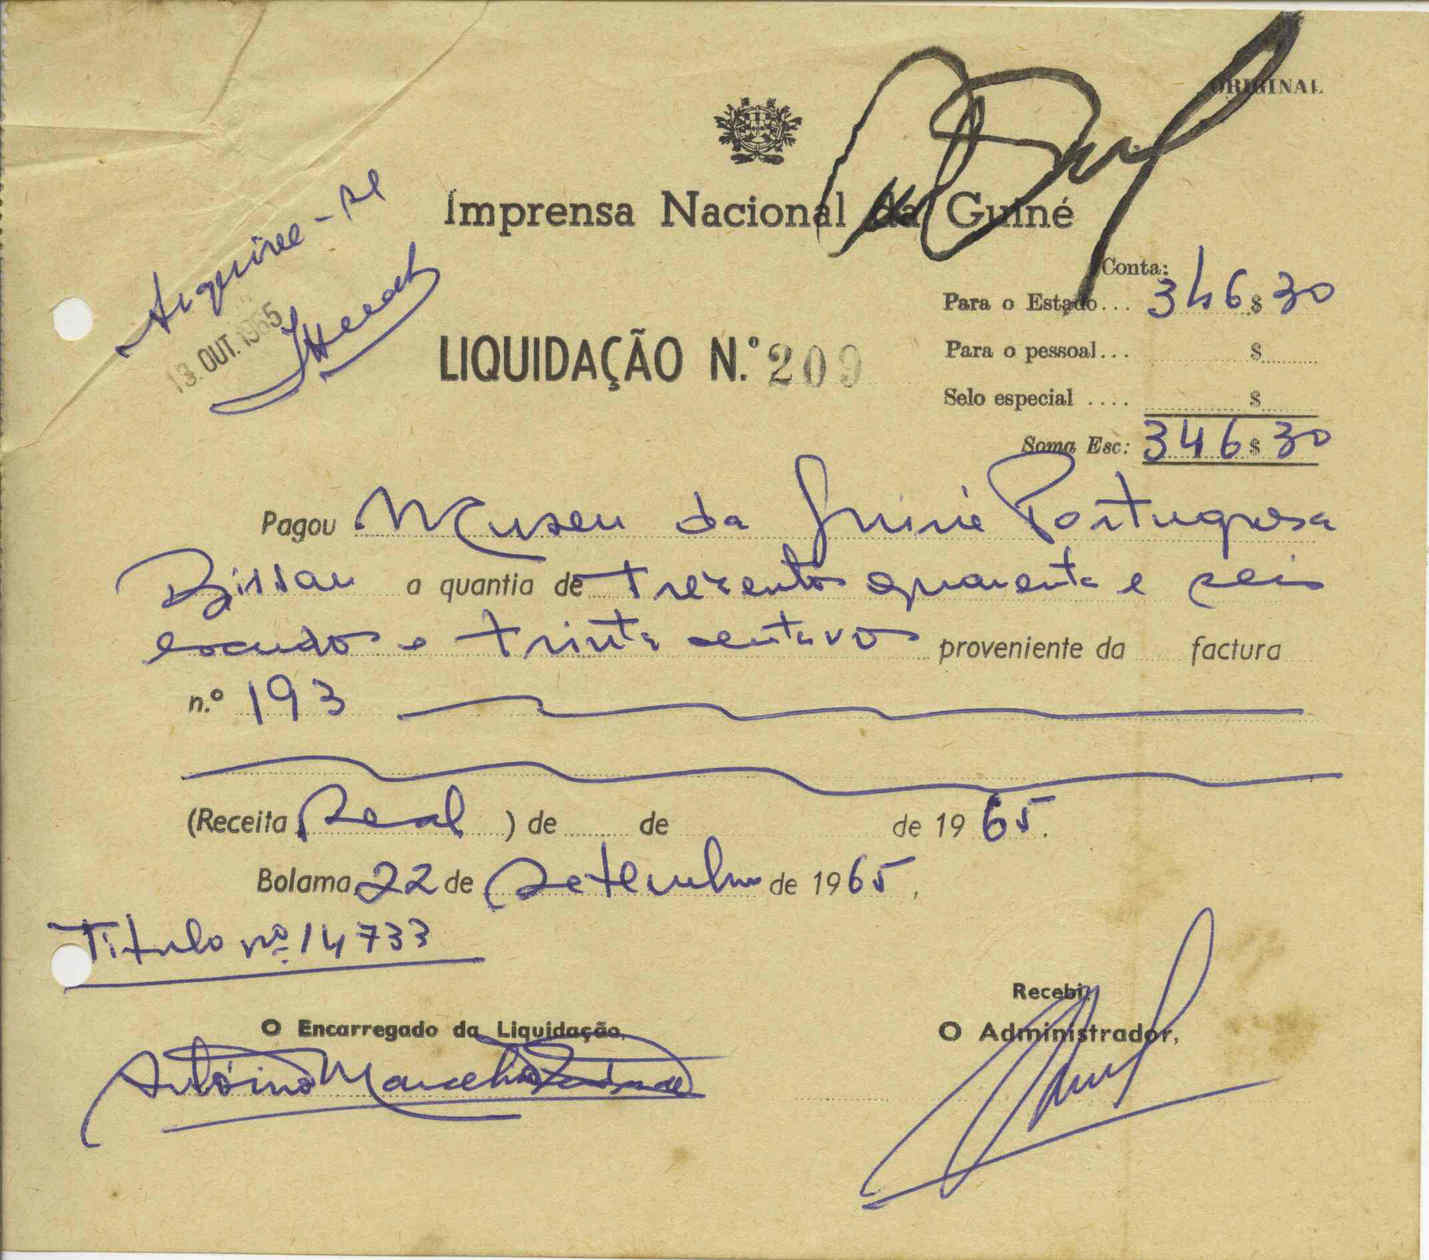 ORIGINAL
Imprensa Nacional da Guiné
Arquive-se
13. OUT. 1965
Conta:
Para o Estado... 346$30
Para o pessoal... $
Selo especial .... $
Soma Esc: 346$30
LIQUIDAÇÃO N.º 209
Pagou Museu da Guiné Portuguesa
Bissau a quantia de trezentos quarenta e seis
escudos e trinta centavos proveniente da factura
n.º 193
(Receita Real ) de de de 1965.
Bolama 22 de Setembro de 1965,
Titulo nº 14733
Recebi,
O Encarregado da Liquidação,
O Administrador,
António Marcelino